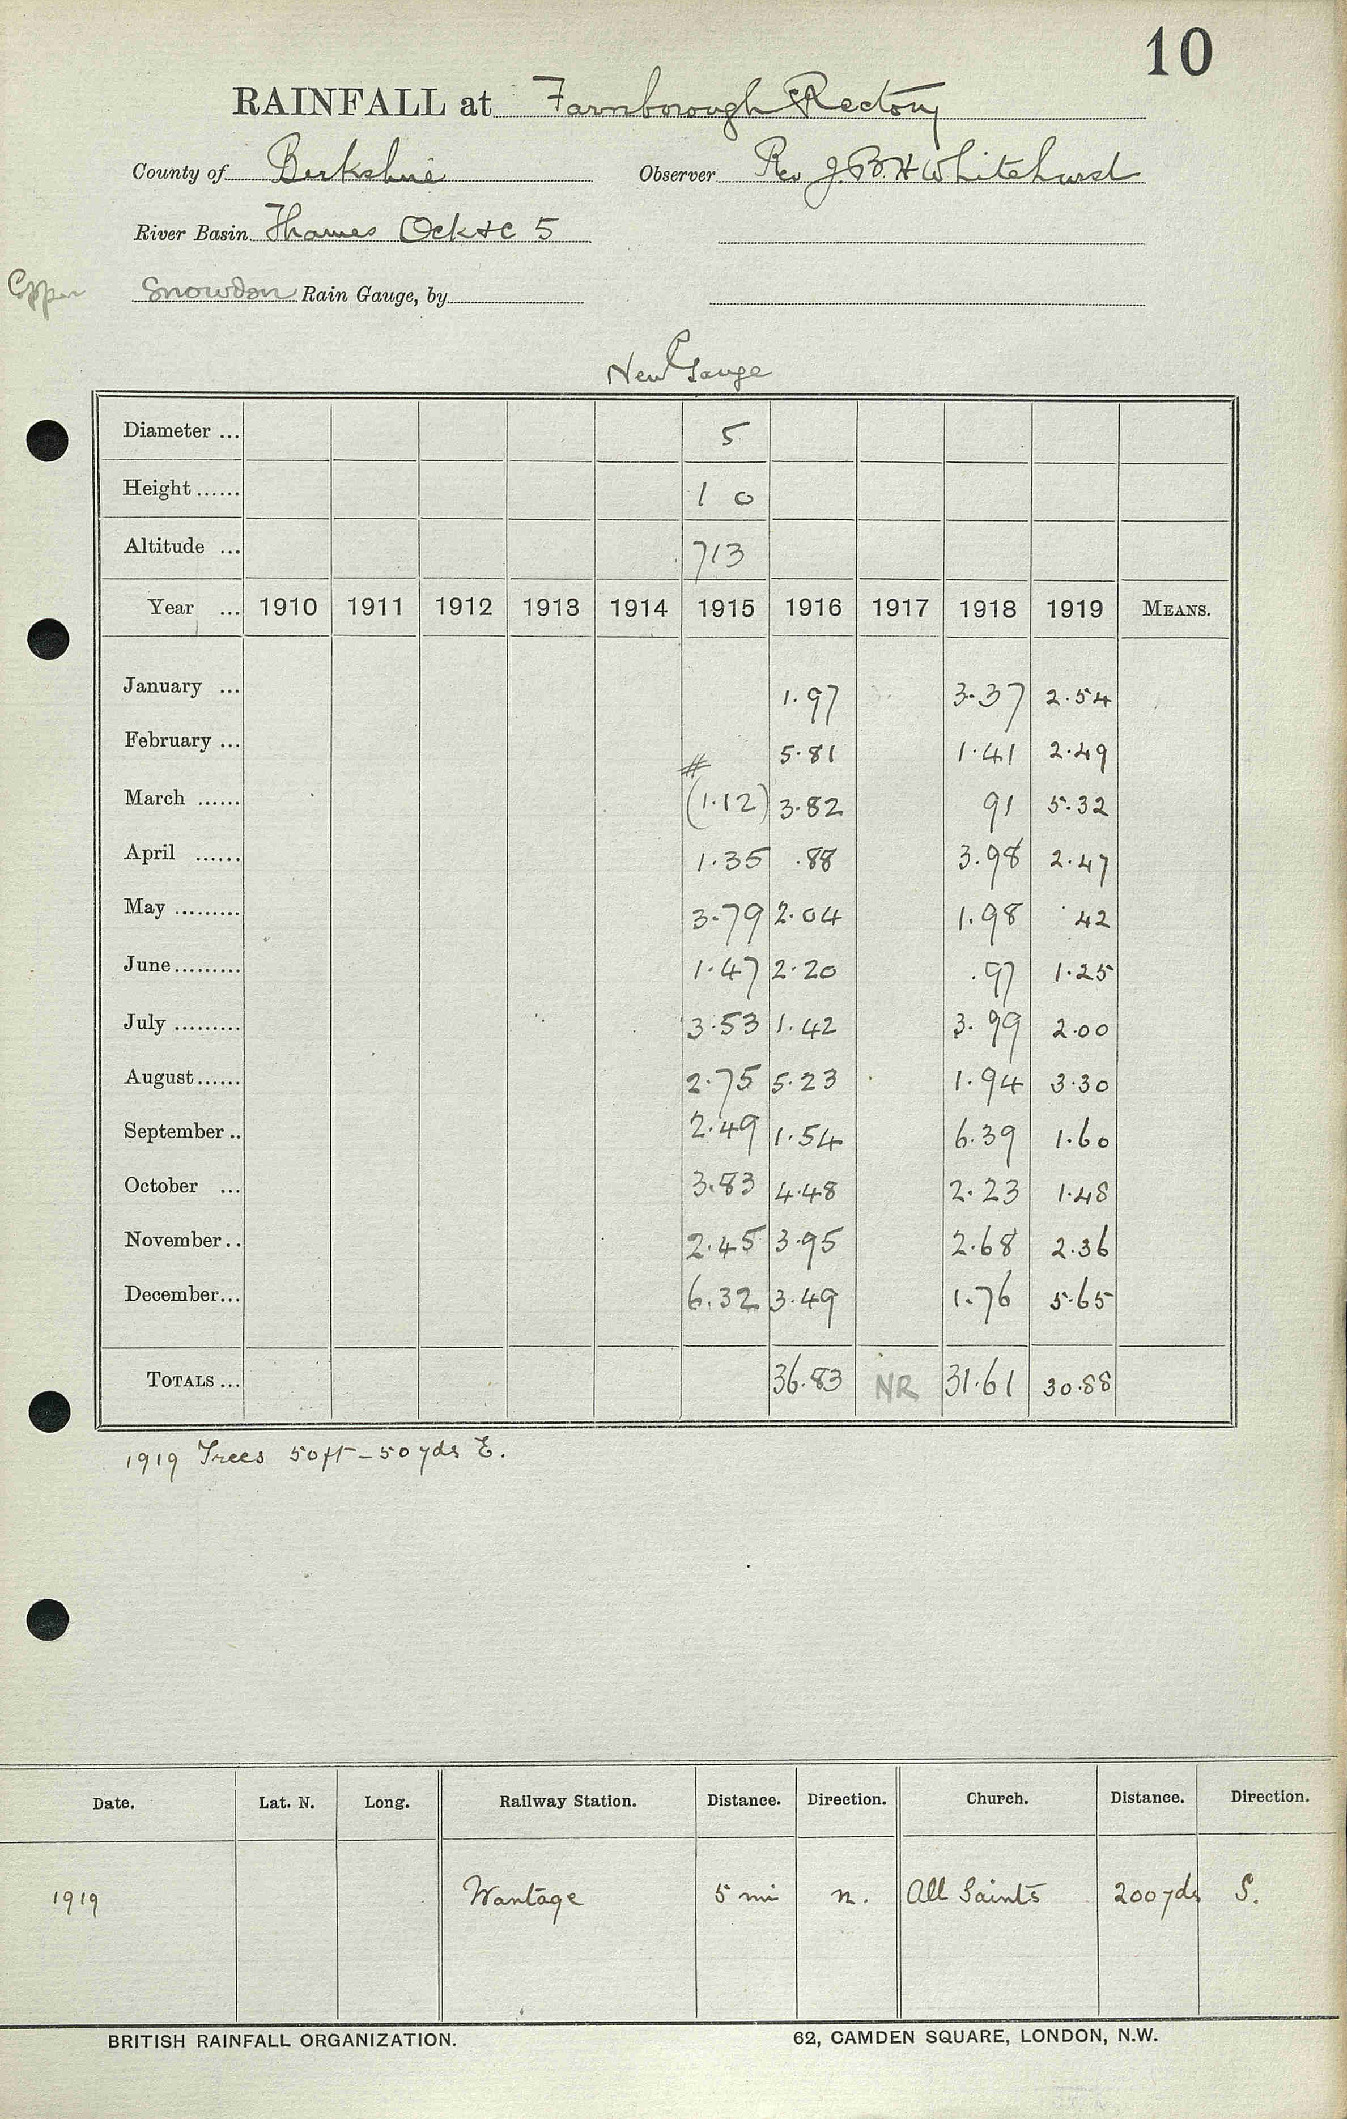 10
RAINFALL at Farnborough Rectory
County of Berkshire Observer Rev J. B. H Whitehurst
River Basin Thames Ock &c 5
Copper Snowdon Rain Gauge, by
New Gauge
Diameter ... 5
Height ...... 1 0
Altitude ... 713
Year ... 1910 1911 1912 1913 1914 1915 1916 1917 1918 1919 MEANS.
January ... 1.97 3.37 2.54
February ... 5.81 1.41 2.49
March ...... # (1.12) 3.82 91 5.32
April ...... 1.35 .88 3.98 2.47
May ......... 3.79 2.04 1.98 .42
June......... 1.47 2.20 .97 1.25
July ......... 3.53 1.42 3.99 2.00
August...... 2.75 5.23 1.94 3.30
September .. 2.49 1.54 6.39 1.60
October ... 3.83 4.48 2.23 1.48
November.. 2.45 3.95 2.68 2.36
December... 6.32 3.49 1.76 5.65
TOTALS ... 36.83 NR 31.61 30.88
1919 Trees 50ft - 50yds E.
Date. Lat. N. Long. Railway Station. Distance. Direction. Church. Distance. Direction.
1919 Wantage 5 mi n. All Saints 200yds S.
BRITISH RAINFALL ORGANIZATION. 62, CAMDEN SQUARE, LONDON, N.W.